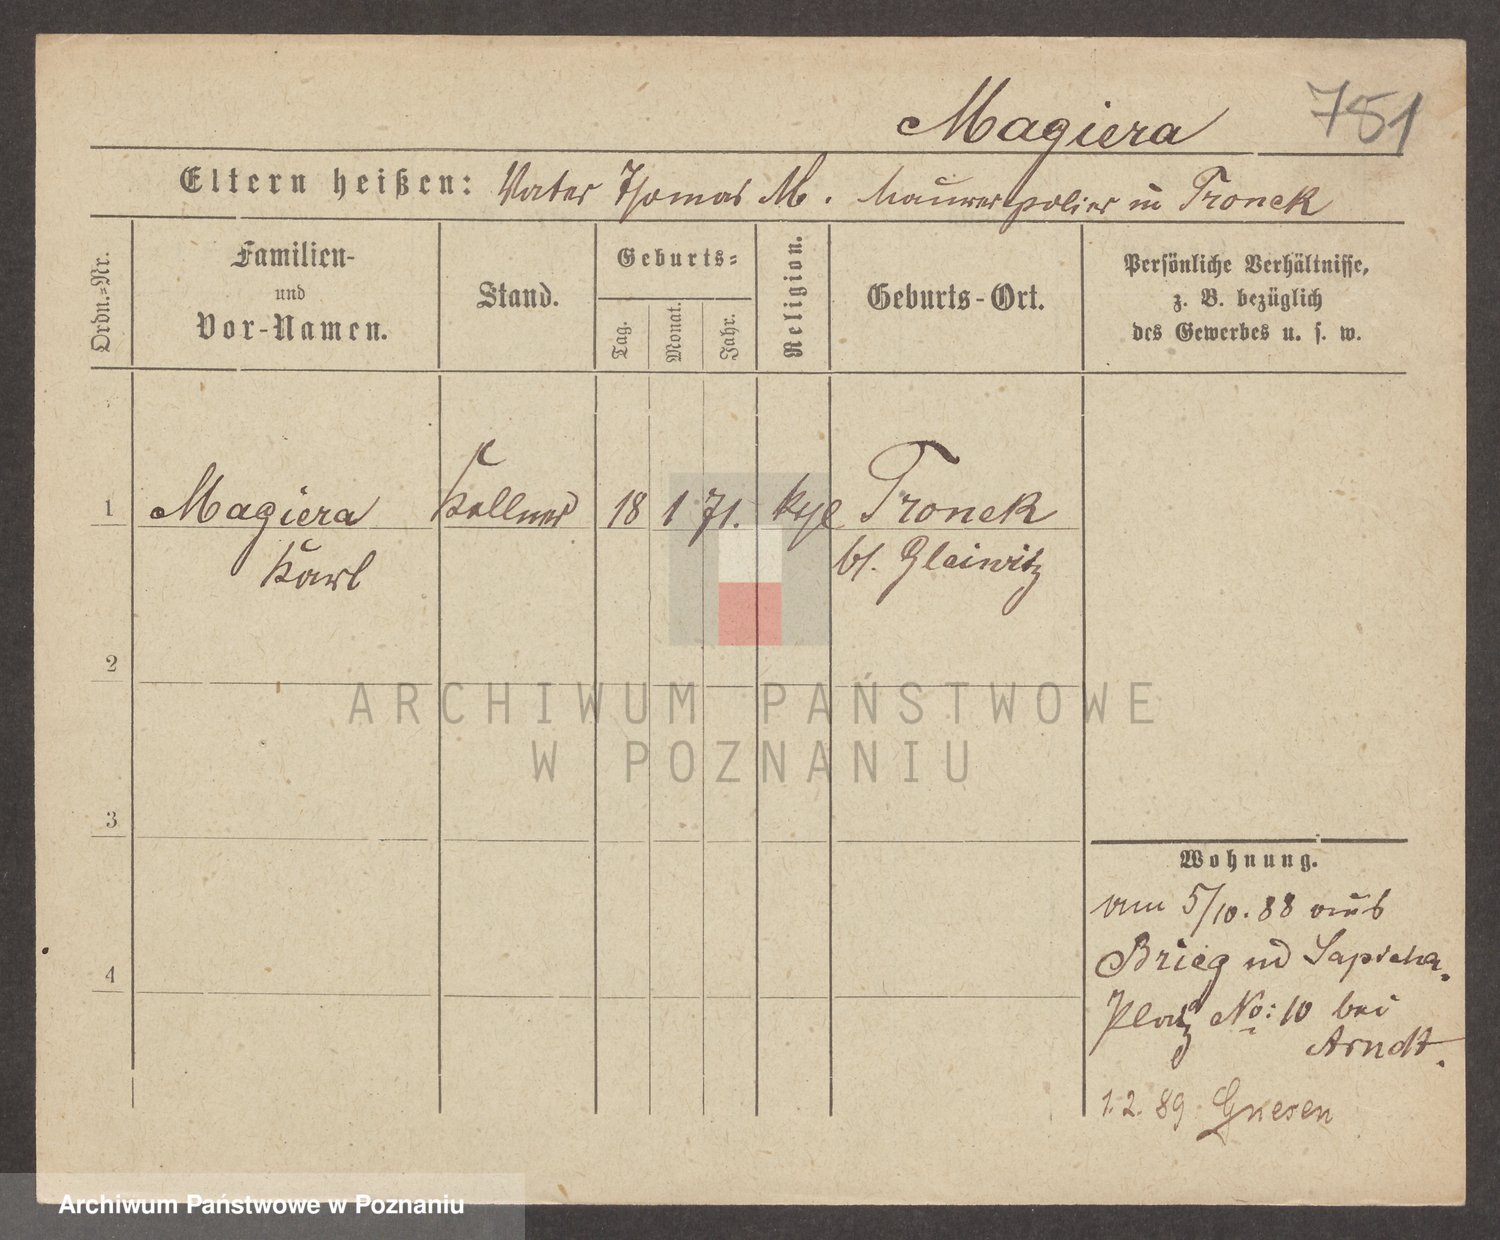 Magiera
751
Eltern heißen: Vater Thomas M. Maurerpolier in Tronek
Ordn.-Nr.
Familien-
und
Vor-Namen.
Stand.
Geburts-
Tag.
Monat.
Jahr.
Religion.
Geburts-Ort.
Persönliche Verhältnisse,
z. B. bezüglich
des Gewerbes u. s. w.
1 Magiera Kellner 18 1 71. Tronek
Karl bf. Gleiwitz
2
ARCHIWUM PAŃSTWOWE
W POZNANIU
3
4
Wohnung.
am 5/10. 88 aus
Brieg nd Sapieha-
Platz No: 10 bei
Arndt.
1.2. 89 Gnesen
Archiwum Państwowe w Poznaniu